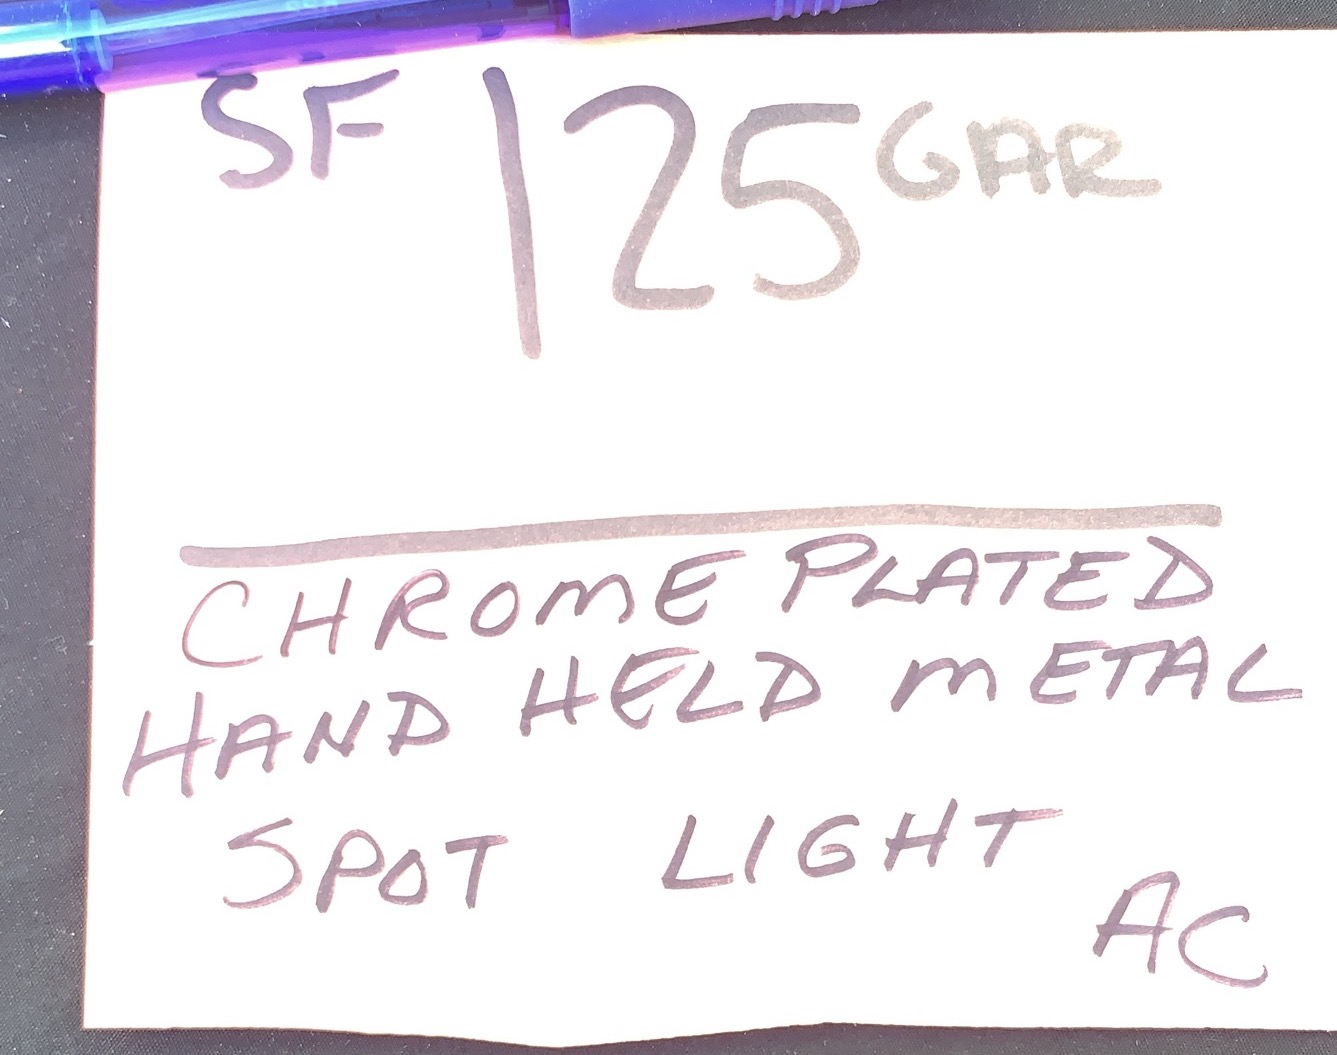 SF 125 GAR
CHROME PLATED
HAND HELD METAL
SPOT LIGHT
AC